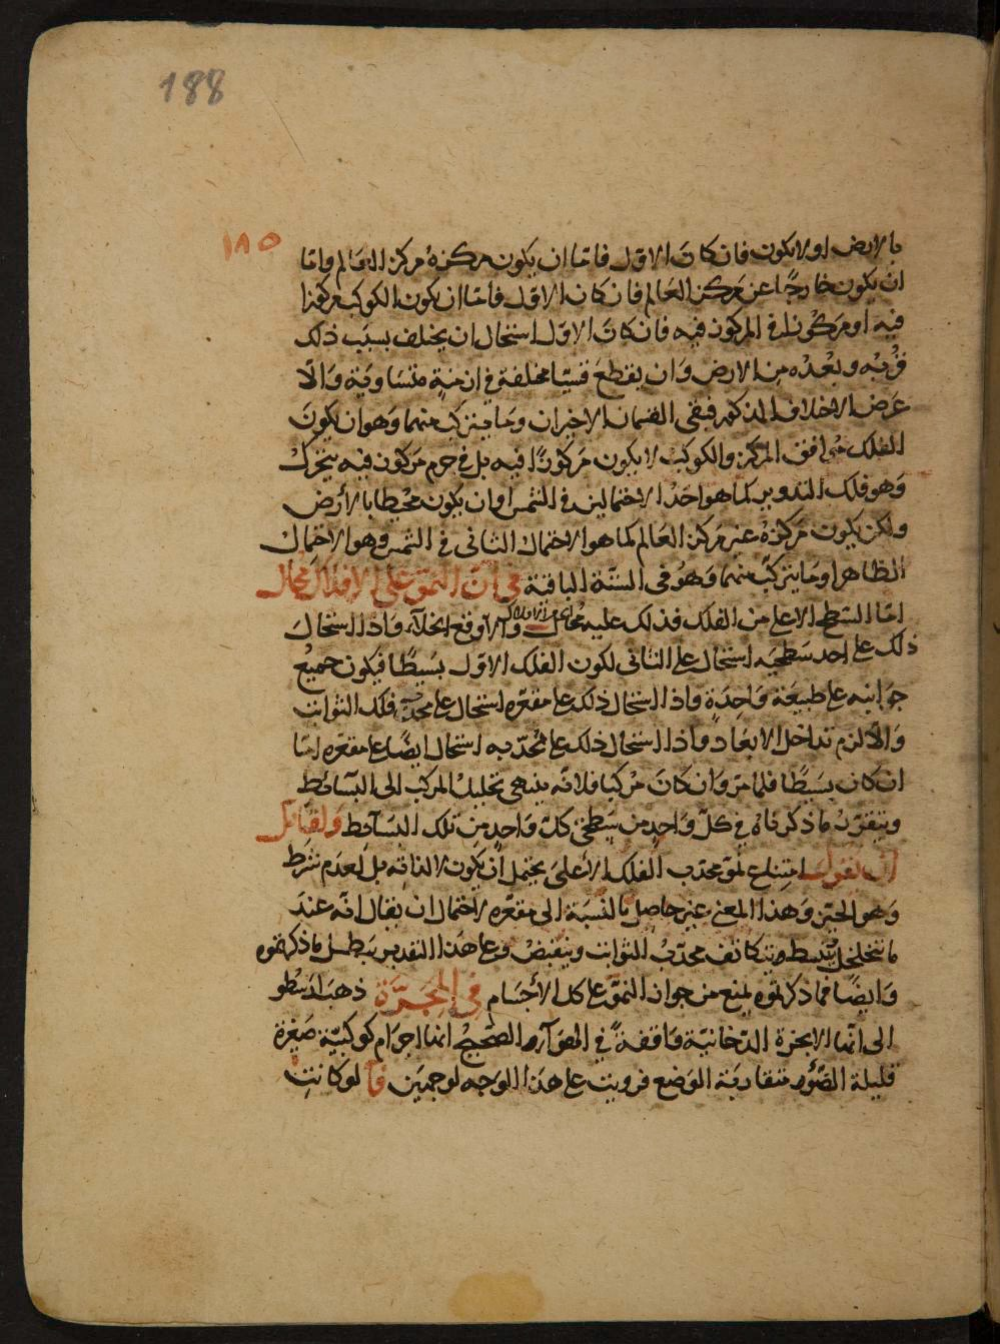 188
١٨٥
بالارض او لا يكون فان كان الاول فاما ان يكون مركزه مركز العالم واما
ان يكون خارجا عن مركز العالم فان كان الاول فاما ان يكون الكوكب مركوزا
فيه او مركوزا في المركوز فيه فان كان الاول استحال ان يختلف بسبب ذلك
قربه وبعده من الارض وان يقطع قسيا مختلفة في ازمنة متساوية والا
عرض الاختلاف المذكور فبقي القسمان الاخيران وما يتركب منهما وهو ان يكون
الفلك موافق المركز والكوكب لا يكون مركوزا فيه بل في جرم مركوز فيه يتحرك
وهو فلك التدوير كما هو احد الاحتمالين في الشمس او ان يكون محيطا بالأرض
ولكن يكون مركزه غير مركز العالم كما هو الاحتمال الثاني في الشمس وهو الاحتمال
الظاهر او ما يتركب منهما وهو في الستة الباقية في ان النمو على الافلاك محال
اما السطح الاعلى من الفلك فذلك عليه محال والا وقع الخلآء واذا استحال
ذلك على احد سطحيه استحال على الثاني لكون الفلك الاول بسيطا فيكون جميع
جوانبه على طبيعة واحدة واذا استحال ذلك على مقعره استحال على محدب فلك الثوابت
والا لزم تداخل الابعاد واذا استحال ذلك على محدبه استحال ايضا على مقعره اما
ان كان بسيطا فلما مر وان كان مركبا فلانه ينتهي تحليل المركب الى البسائط
ويتقرر ما ذكرناه في كل واحد من سطحي كل واحد من تلك البسآئط ولقائل
ان يقول امتناع نمو محدب الفلك الأعلى يحتمل ان يكون لا لذاته بل لعدم شرط
وهو الحيز وهذا المعنى غير حاصل بالنسبة الى مقعره لاحتمال ان يقال انه عند
ما يتخلخل ينبسط ويتكاثف محدب الثوابت وينقبض وعلى هذا التقدير يبطل ما ذكرتموه
وايضا فما ذكرتموه يمنع من جواز النمو على كل الأجسام في المجرة ذهب ارسطو
الى انها الابخرة الدخانية واقفة في الهوآء والصحيح انها اجرام كوكبية صغيرة
قليلة الضوء متقاربة الوضع فرويت على هذا الوجه لوجهين فا لو كانت